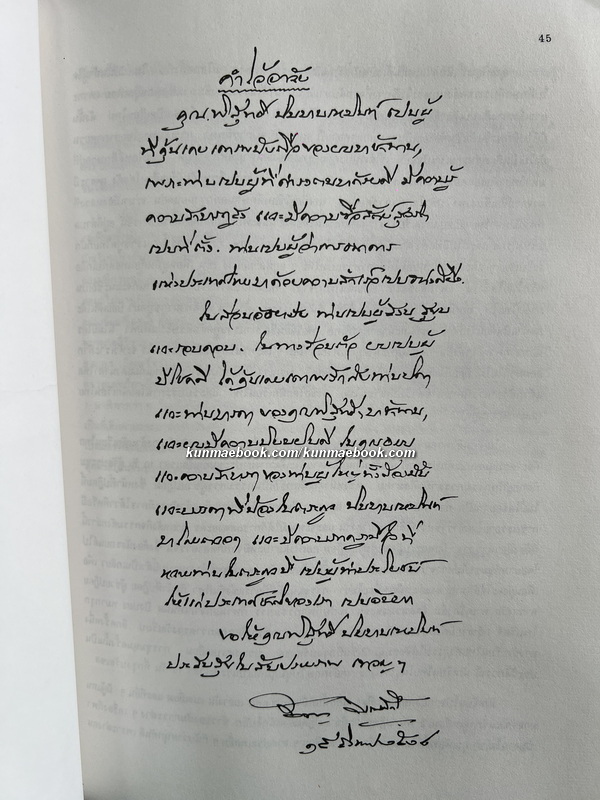 45
คำไว้อาลัย
คุณพิสุทธิ์ นิมมานเหมินท์ เป็นผู้
ที่คุ้นเคยเคารพนับถือของผมมาช้านาน,
เพราะท่านเป็นผู้ที่ดำรงตนมาด้วยดี มีความรู้
ความสามารถสูง และมีความซื่อสัตย์สุจริต
เป็นที่ตั้ง. ท่านเป็นผู้ว่าการธนาคาร
แห่งประเทศไทยมาด้วยความสำเร็จเป็นอย่างดียิ่ง.
ในส่วน ท่านเป็นผู้ สุขุม
และรอบคอบ. ในทางส่วนตัว ผมเป็นผู้
มีโชคดี ได้คุ้นเคยเคารพรักกับท่านบิดา
และท่านมารดา ของคุณพิสุทธิ์มาช้านาน,
และผมมีความนิยมยินดี ในคุณธรรม
kunmaebook.com/kunmaebook.com
และความสามารถของท่านผู้ใหญ่ทั้งสองนี้
และบรรดาพี่น้องในตระกูล นิมมานเหมินท์
มาโดยตลอด และมีความภาคภูมิใจที่
หลายท่านในตระกูลนี้ เป็นผู้ทำประโยชน์
ให้แก่ประเทศชาติของเรา เป็นอันมาก
ขอให้คุณพิสุทธิ์ นิมมานเหมินท์
ประสบสุขในสัมปรายภพ เทอญ ๆ